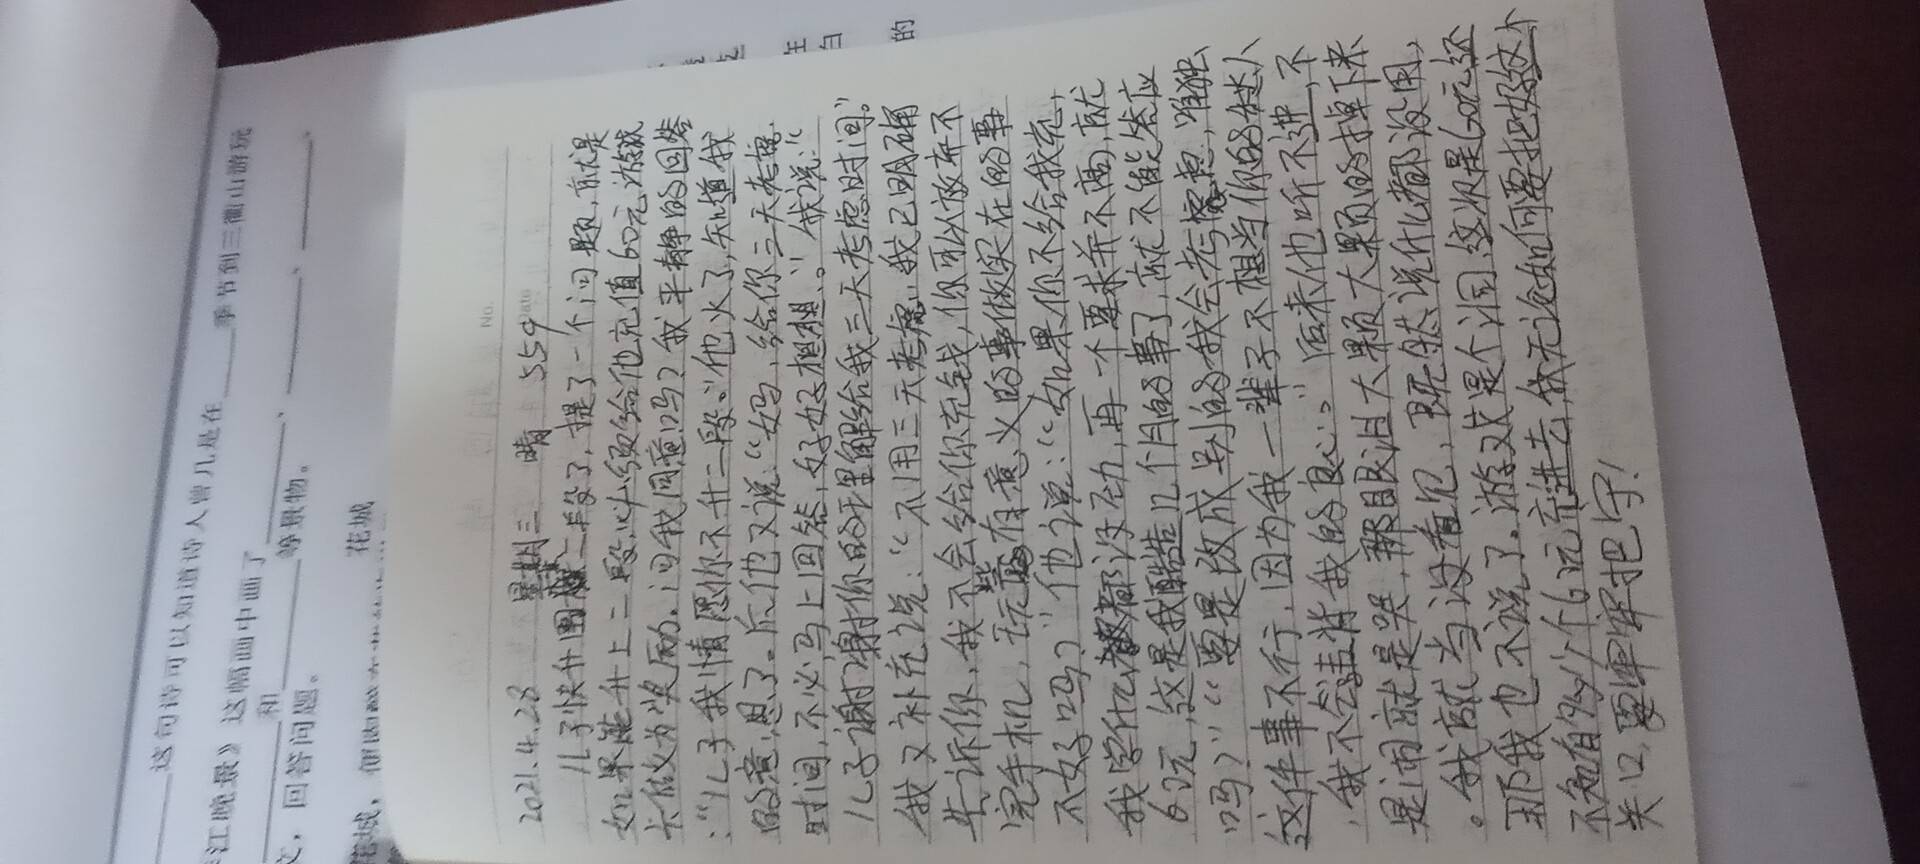 这句诗可以知道诗人曾几是在
季节到三衢山游玩
江晚景》这幅画中画了
、
、
、
和
等景物。
文，回答问题。
花城
No.
2021.4.28 星期三 晴 559
儿子快升围棋二段了，提了一个问题，就是
如果能升上二段，必须给他充值60元游戏
卡做为奖励。问我同意吗？我平静的回答
：“儿子我情愿你不升二段。”他火了，知道我
的意思了。后他又说：“妈妈，给你三天考虑
时间，不必马上回答，好好想想。”我说：“
儿子谢谢你的理解给我三天考虑时间。”
我又补充说：“不用三天考虑，我已明确
告诉你，我不会给你充钱，你可以放弃不
完手机，玩些有意义的事做实在的事
不好吗？”他说：“如果你不给我充，
我学什么都没劲，再一个要求并不高，就
60元，这是我酝酿几个月的事了，就不能答应
吗？”“要是换成别的我会考虑，唯独
这件事不行，因为我一辈子不想当你的枯人
，我不会违背我的良心。”后来他听不进，不
是闹就是哭，那眼泪大颗大颗的掉下来
。我就当没看见，既然说什么都没用，
那我也不说了。游戏是个洞，这次是60元还
不知有多少个60元充进去，我无论如何要把好这个
关口，要牢牢把守！